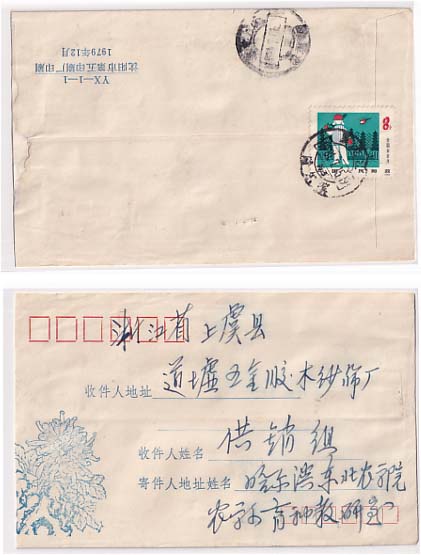 YX—1—1
沈阳市第五印刷厂印刷
1979年12月
8
浙江省上虞县
收件人地址 道墟五金胶木纱筛厂
收件人姓名 供销组
寄件人地址姓名 哈尔滨东北农学院
农学系育种教研室